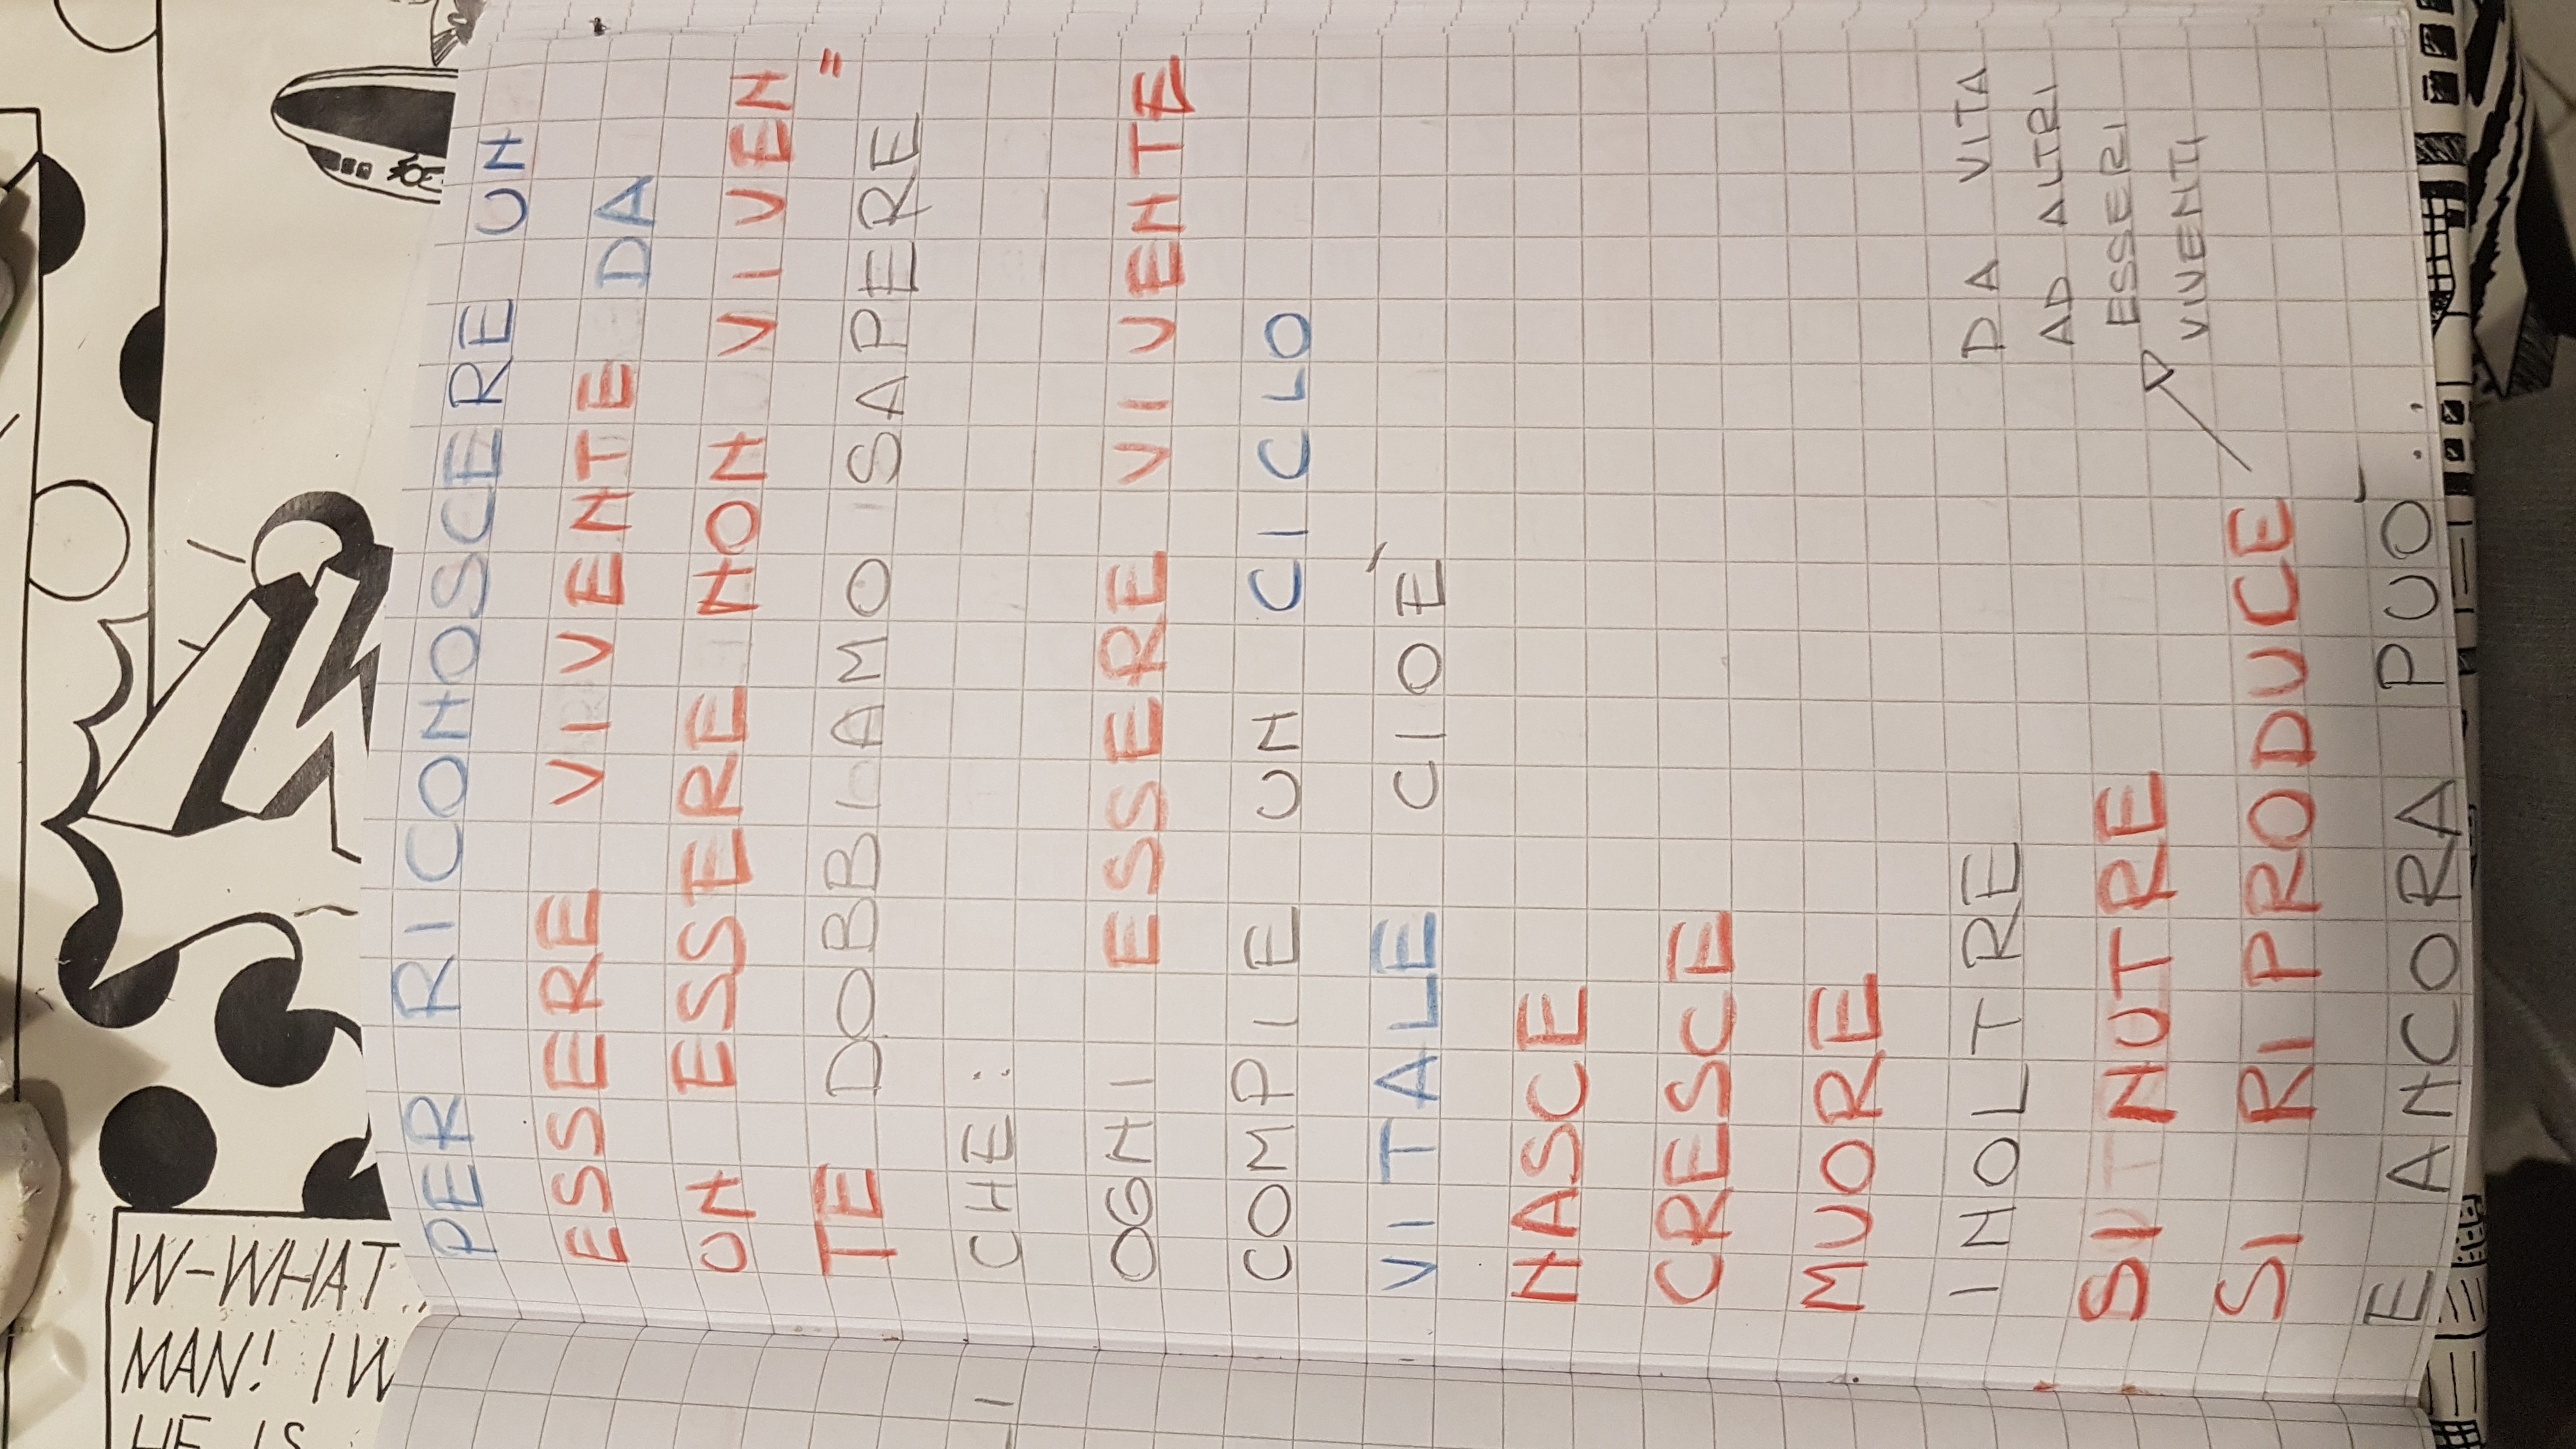 W-WHAT
MAN! I'M
HE IS
PER RICONOSCERE UN
ESSERE VIVENTE DA
UN ESSERE NON VIVEN=
TE DOBBIAMO SAPERE
CHE:
OGNI ESSERE VIVENTE
COMPIE UN CICLO
VITALE CIOÈ
NASCE
CRESCE
MUORE
INOLTRE
SI NUTRE
SI RIPRODUCE
DA VITA
AD ALTRI
ESSERI
VIVENTI
E ANCORA PUÒ..